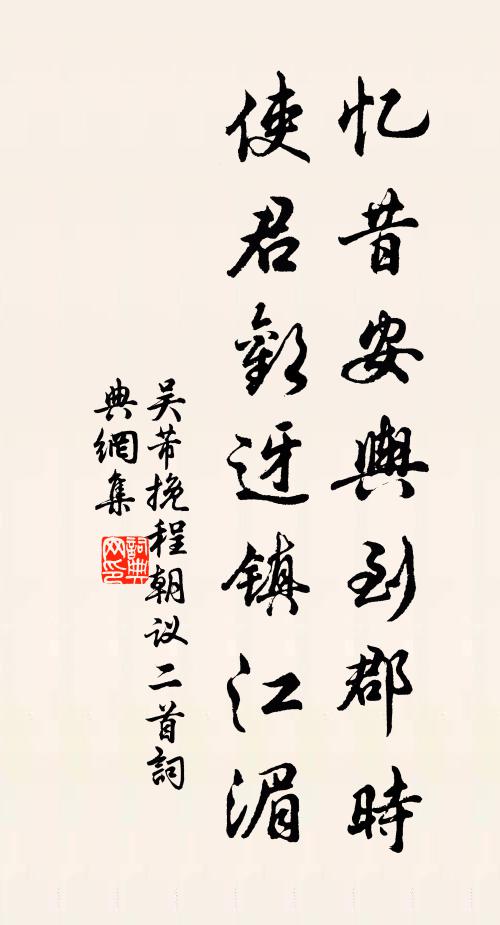 忆昔安舆到郡時
使君歡迓镇江湄
吴芾挽程朝议二首詞
典網集
詞典
网印